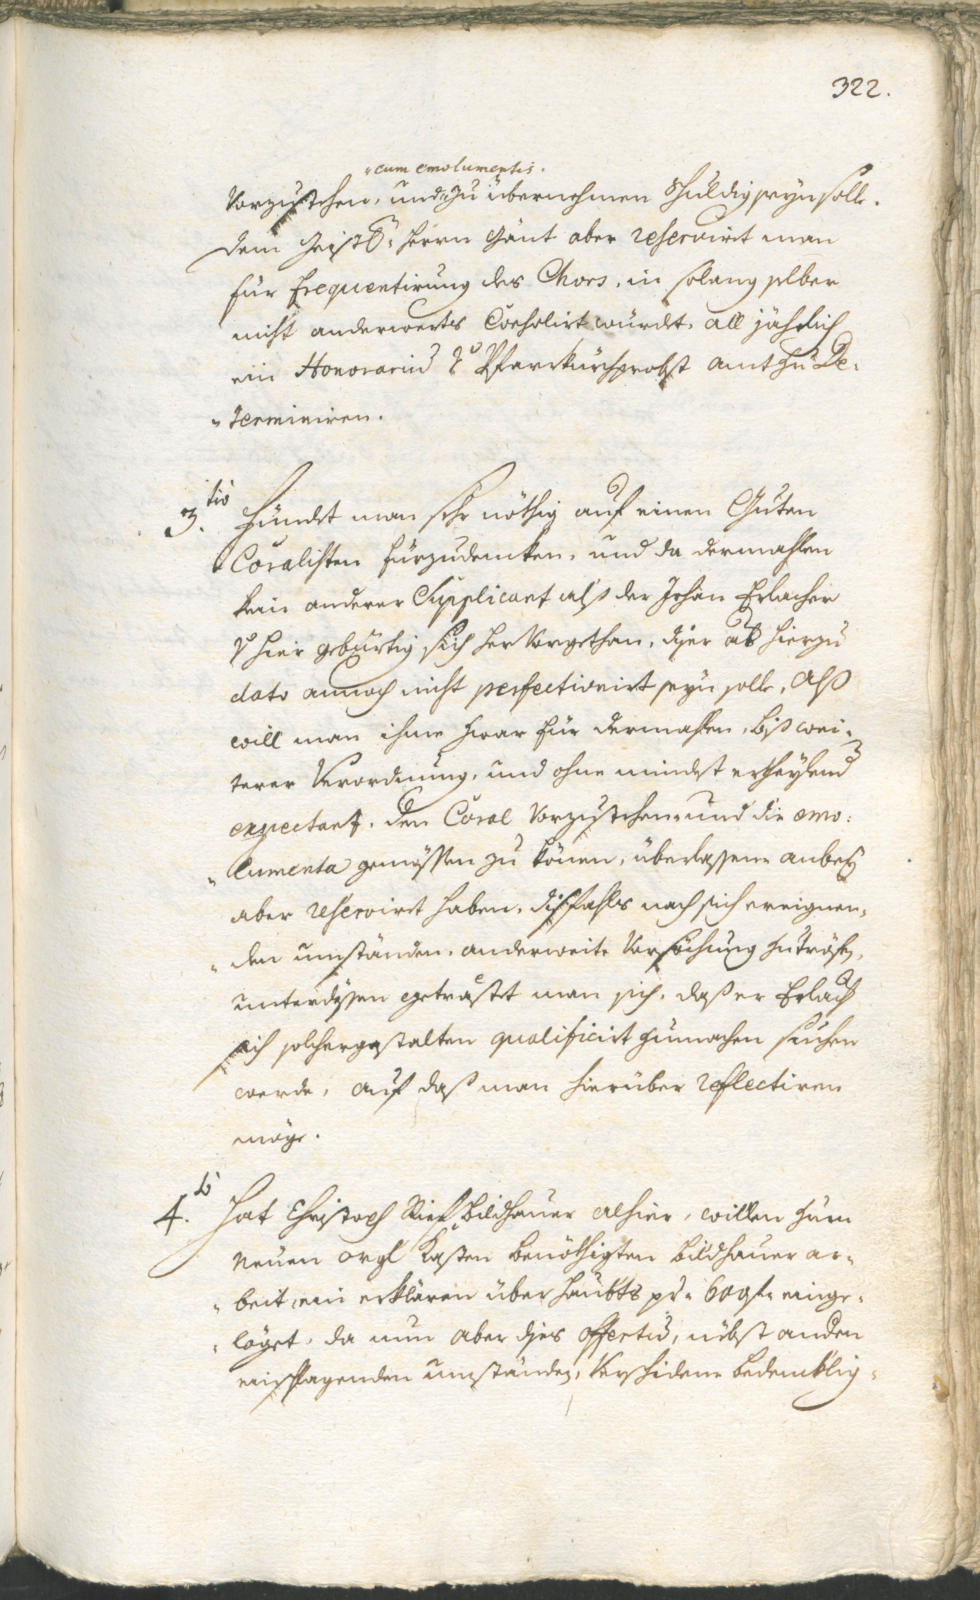 322.
cum emolumentis.
Vorzustehen, und zu übernehmen schuldig seyn solle.
dem Geistl: Herrn Gänt aber reserviert man
für frequentirung des Chors, in solang selber
nicht anderwerts Coesolirt würdet, all jährlich
ein Honorariu Pfarrkürchprobst amt zu De-
terminiren.
3.tio Fündet man sehr nöthig auf einen Guten
Coralisten fürzudencken, und da dermahlen
kein anderer Supplicant alß der Johan Erlacher
hier gebürtig sich her Vorgethan, diser aber hierzu
dato annoch nicht perfectionirt seyn solle, Alß
will man ihme zwar für dermahlen, biß wei-
terer Verordnung, und ohne mindest ertheylend
expectanz, den Coral Vorzustehen, und die emo-
lumenta genüssen zu könen, überlassen, anbey
aber reserviert haben, dißfahls nach sich ereignen-
den umständen, anderweite Vorsöchung zutröffen,
unterdessen getröstet man sich, daß er Erlach
sich solchergestalten qualificirt zumachen suchen
werde, auf daß man hierüber reflectiren
möge.
4.to Hat Christoph Bildhauer alhier, willen zum
neuen orgl Kasten benöthigten bildhauer ar-
beit, ein erklären überhaubts pr. 60 gl. einge-
löget, da nun aber dises offertu, nebst anden
einschlagenden umständen, Verschidene bedencklig-